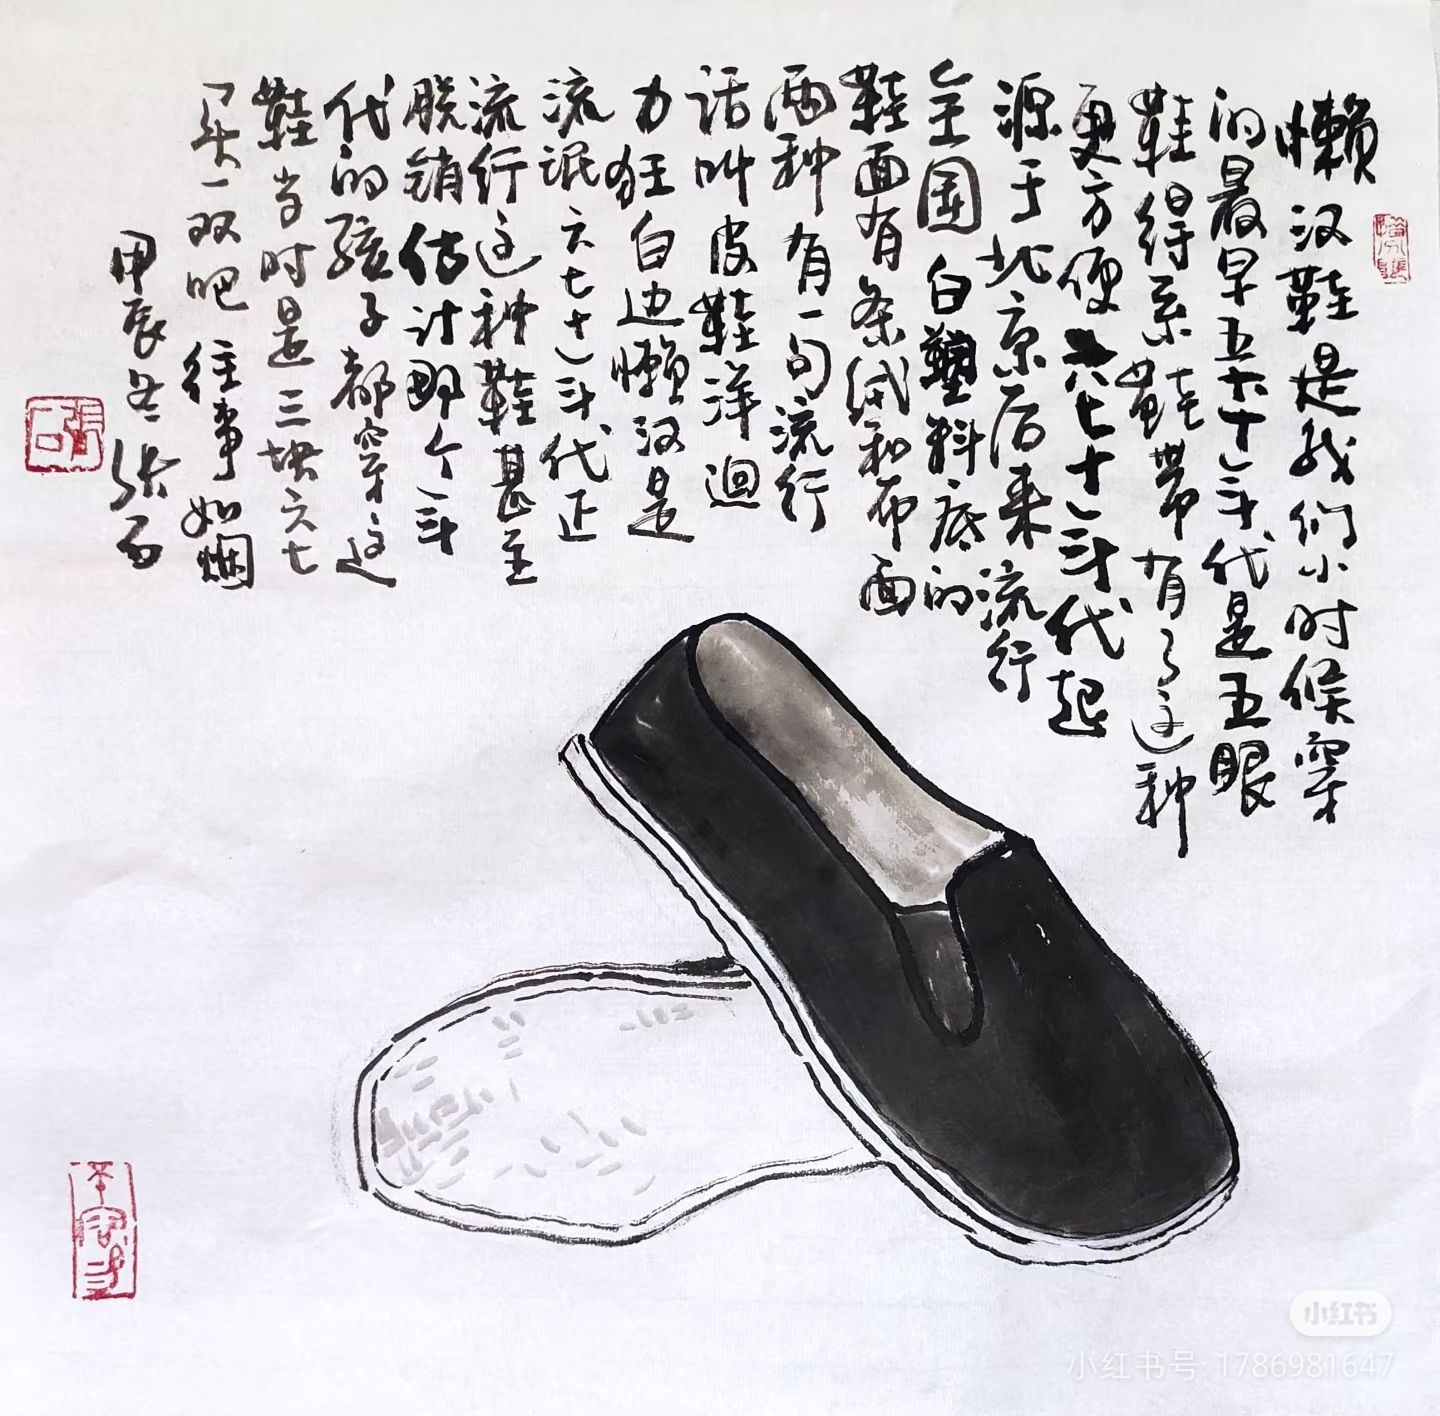 懒汉鞋是我们小时候穿
的最早五六十年代是五眼
鞋得系鞋带有了这种
更方便六七十年代起
源于北京后来流行
全国白塑料底的
鞋面有条绒和布面
两种有一句流行
话叫皮鞋洋迴
力狂白边懒汉是
流氓六七十年代正
流行这种鞋甚至
脱销估计那个年
代的孩子都穿这
鞋当时是三块六七
买一双吧往事如烟
甲辰冬张石
小红书
小红书号: 1786981647